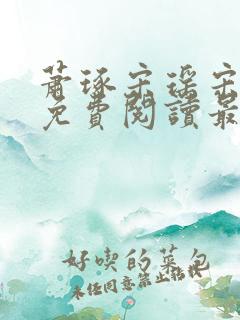 蕭琢宋瑤宋
免費閱讀最
好喫的菜包
未經同意禁止轉載